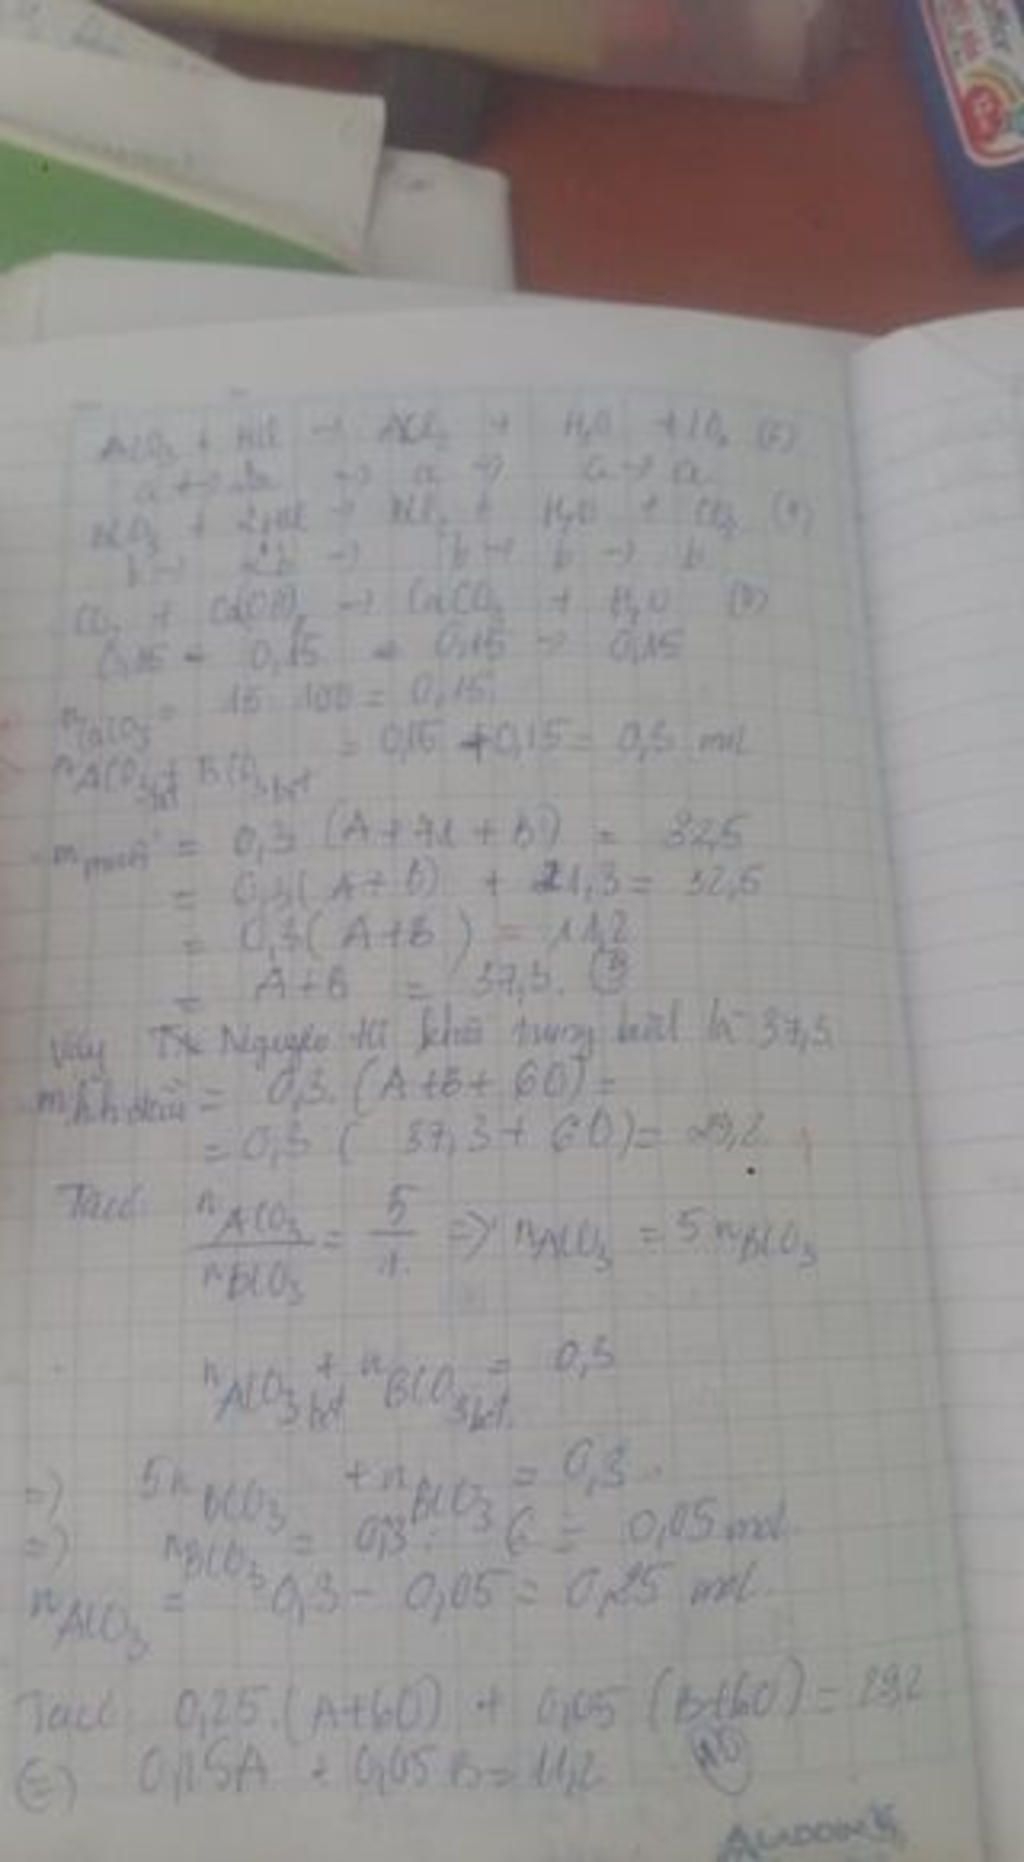 ACO3 + HCl → ACl2 + H2O + CO2 (6)
a → 2a → a → a → a
BCO3 + 2HCl → BCl2 + H2O + CO2
b → 2b → b → b → b
CO2 + Ca(OH)2 → CaCO3 + H2O (8)
0,15 ← 0,15 ← 0,15 → 0,15
nCaCO3 = 15 : 100 = 0,15
nACO3 bđ + BCO3 bđ = 0,15 + 0,15 = 0,3 mol
m muối = 0,3 (A+71+B) = 32,5
= 0,3(A+B) + 21,3 = 32,5
= 0,3(A+B) = 11,2
= A+B = 37,3.
Vậy Nguyên tử khối trung bình là 37,3
m hh đầu = 0,3.(A+B+60) =
= 0,3 ( 37,3 + 60) = 29,2
Ta có: nACO3 / nBCO3 = 5/1 => nACO3 = 5.nBCO3
nACO3 bđ + nBCO3 bđ = 0,3
=> 5nBCO3 + nBCO3 = 0,3
=> nBCO3 = 0,3 : 6 = 0,05 mol
nACO3 = 0,3 - 0,05 = 0,25 mol
Ta có 0,25.(A+60) + 0,05 (B+60) = 29,2
0,25A + 0,05B = 11,2